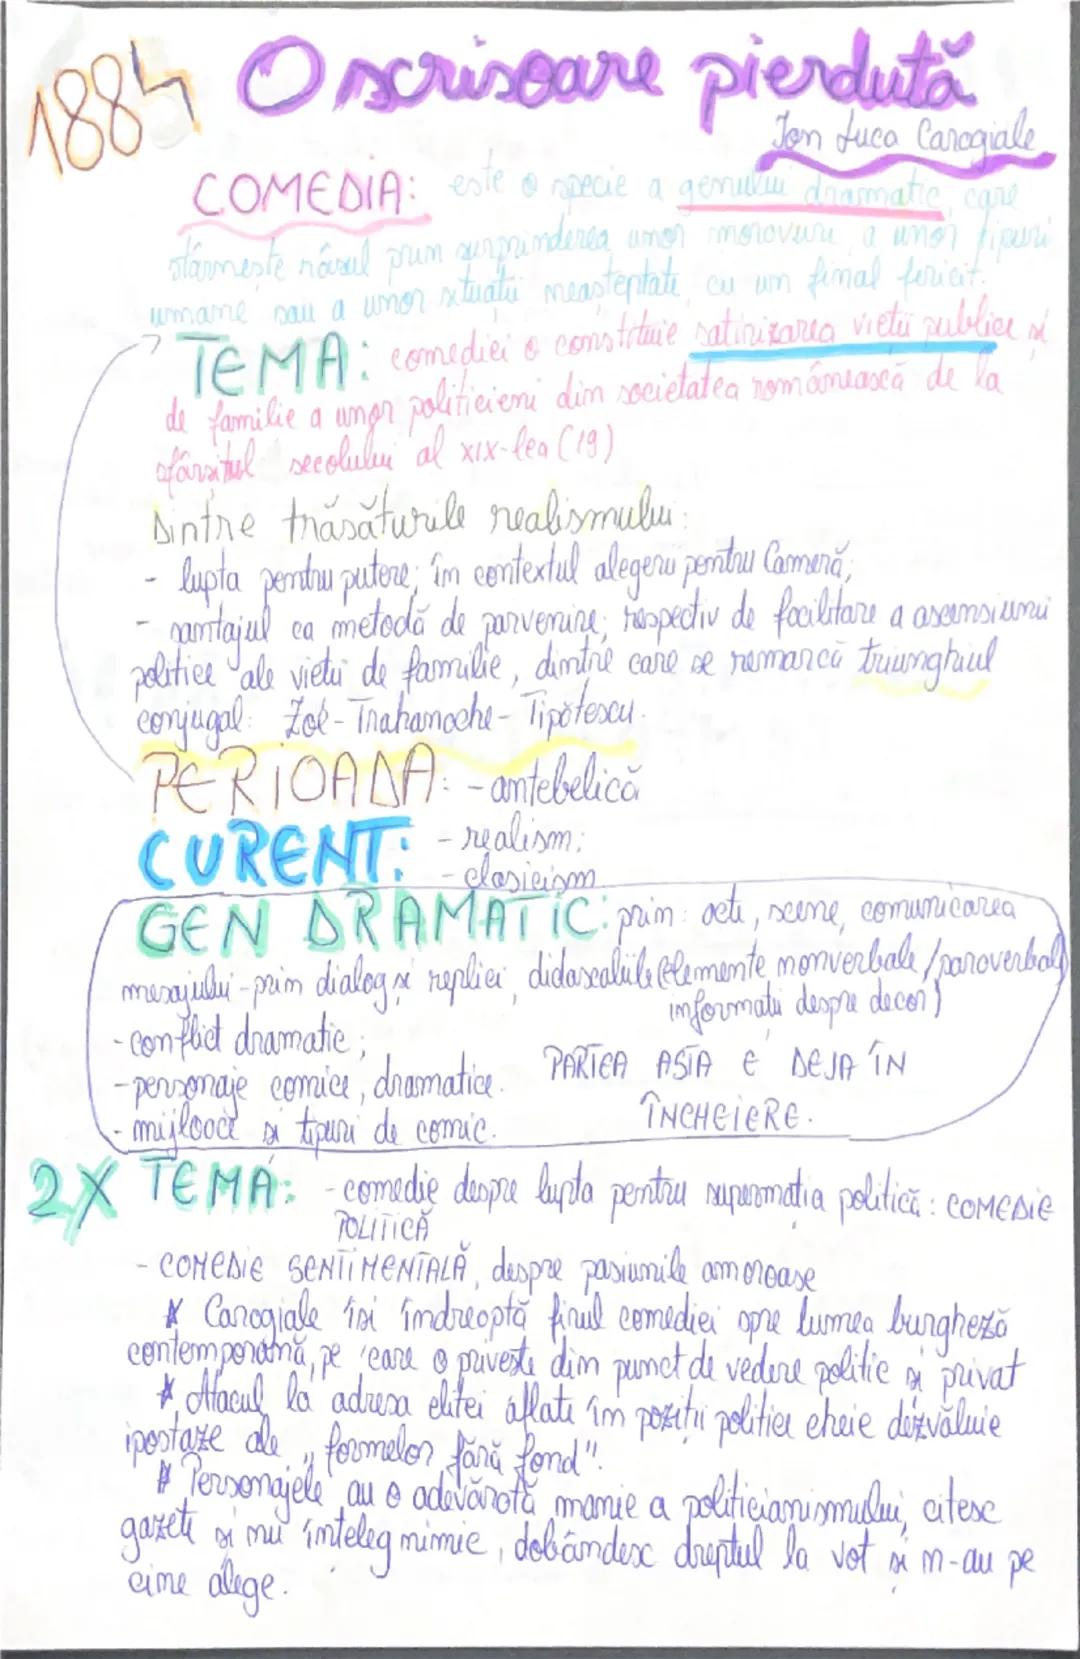 1884 O scrisoare pierdută
Ion Luca Caragiale
COMEDIA: este o specie a genului dramatic, care
stârnește râsul prin surprinderea unor moravuri, a unor tipuri
umane sau a unor situații neașteptate, cu un final fericit.
TEMA: comediei o constituie satirizarea vieții publice și
de familie a unor politicieni din societatea românească de la
sfârșitul secolului al XIX-lea (19)
Dintre trăsăturile realismului:
- lupta pentru putere; în contextul alegerii pentru Cameră;
- șantajul ca metodă de parvenire; respectiv de facilitare a ascensiunii
politice ale vieții de familie, dintre care se remarcă triunghiul
conjugal: Zoe-Trahanache-Tipătescu.
PERIOADA: - antebelică
CURENT: - realism;
- clasicism
GEN DRAMATIC: prin: acte, scene, comunicarea
mesajului - prin dialog și replici, didascaliile (elemente nonverbale/paraverbale,
informații despre decor)
- conflict dramatic;
- personaje comice, dramatice. PARTEA ASTA E DEJA ÎN
- mijloace și tipuri de comic. ÎNCHEIERE.
2X TEMA: - comedie despre lupta pentru supremația politică: COMEDIE
POLITICĂ
- COMEDIE SENTIMENTALĂ, despre pasiunile amoroase
* Caragiale își îndreaptă firul comediei spre lumea burgheză
contemporană, pe care o privește din punct de vedere politic și privat
* Atacul la adresa elitei aflate în poziții politice cheie dezvăluie
ipostaze ale „formelor fără fond".
* Personajele au o adevărată manie a politicianismului, citesc
gazete și nu înțeleg nimic, dobândesc dreptul la vot și n-au pe
cine alege.